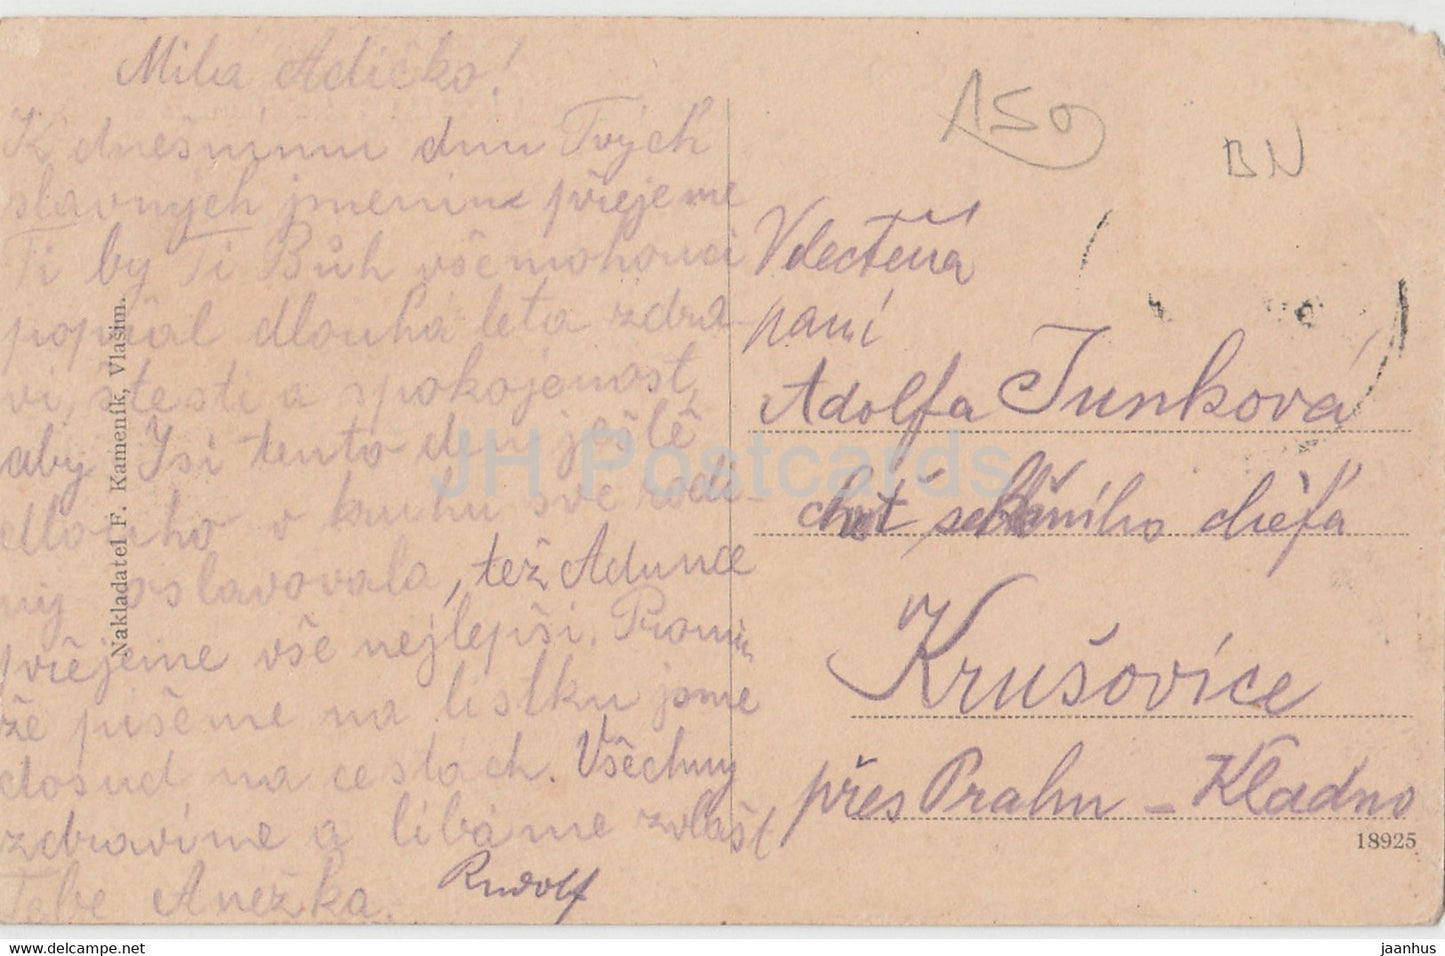 Milá Adičko!
K dnešnímu dnu Tvých
slavných jmenin přejeme
Ti by Ti Bůh všemohoucí
popřál dlouhá leta zdra-
ví, štestí a spokojenost,
aby Jsi tento den ještě
dlouho v kruhu své rodi-
ny oslavovala, též Adunce
přejeme vše nejlepší. Promiň
že píšeme na lístku jsme
dosud na cestách. Všechny
zdravíme a líbáme zvlášť
Tebe Anežka.
Rudolf
Nakladatel F. Kameník, Vlašim.
150
BN
Vdectěná
paní
Adolfa Junková
choť šéfa
Krušovice
přes Prahu - Kladno
18925
JH Postcards
www.delcampe.net
jaanhus